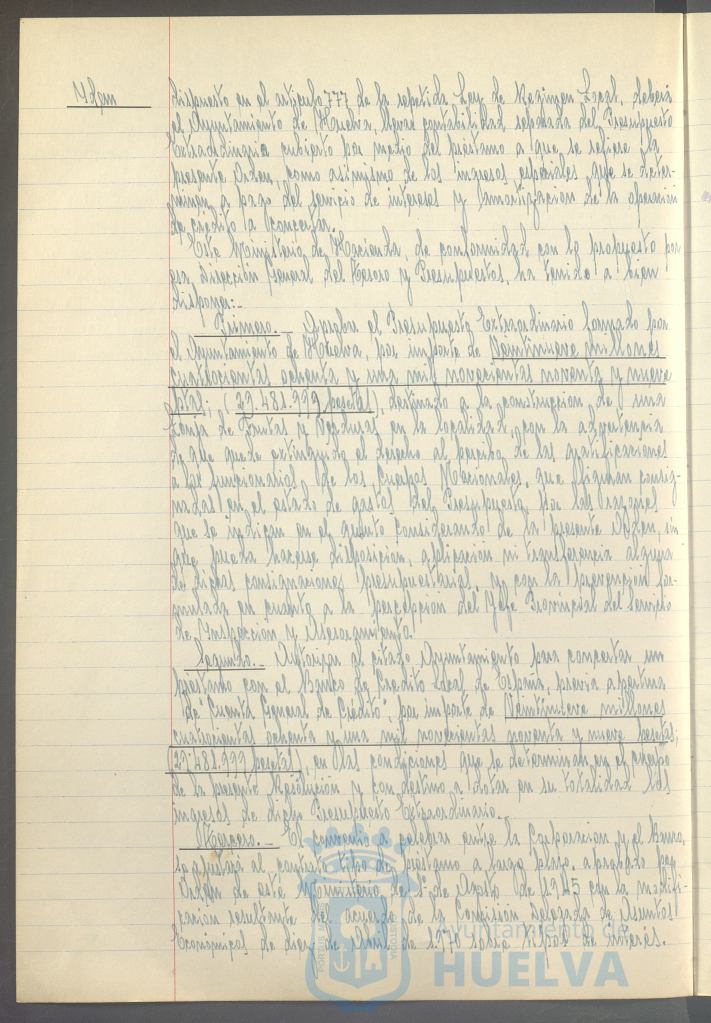 Idem
dispuesto en el artículo 777 de la repetida Ley de Regimen Local, deberá
el Ayuntamiento de Huelva, llevar contabilidad separada del Presupuesto
Extraordinario cubierto por medio del préstamo a que se refiere la
presente Orden, como asimismo de los ingresos especiales que se deter-
minen a pago del servicio de intereses y amortizacion de la operacion
de crédito a concertar.
Este Ministerio de Hacienda, de conformidad con lo propuesto por
esa Dirección General del Tesoro y Presupuestos, ha tenido a bien
disponer:-
Primero.- Aprobar el Presupuesto Extraordinario formado por
el Ayuntamiento de Huelva, por importe de Veintinueve millones
cuatrocientas ochenta y una mil novecientas noventa y nueve
ptas. (29.481.999 pesetas), destinado a la construccion de una
Lonja de Frutas y Verduras en la localidad, con la advertencia
de que quede extinguido el derecho al percibo de las gratificaciones
a los funcionarios de los Cuerpos Nacionales, que figuran consig-
nadas en el estado de gastos del Presupuesto, por las razones
que se indican en el quinto considerando de la presente Orden, sin
que pueda hacerse disposicion, aplicacion ni transferencia alguna
de dichas consignaciones presupuestarias y con la prevencion for-
mulada en cuanto a la percepcion del Jefe Provincial del Servicio
de Inspeccion y Asesoramiento.
Segundo.- Autorizar al citado Ayuntamiento para concertar un
préstamo con el Banco de Credito Local de España, previa apertura
de "Cuenta General de Crédito", por importe de Veintinueve millones
cuatrocientas ochenta y una mil novecientas noventa y nueve pesetas,
(29.481.999 pesetas), en las condiciones que se determinan en el cuerpo
de la presente Resolución y con destino a dotar en su totalidad los
ingresos de dicho Presupuesto Extraordinario.
Tercero.- El convenio a celebrar entre la Corporacion y el Banco,
se ajustará al contrato tipo de préstamo a largo plazo, aprobado por
Orden de este Ministerio de 1º de Agosto de 1.945 con la modifi-
cacion resultante del acuerdo de la Comisión Delegada de Asuntos
Económicos de diez de Abril de 1.970 sobre tipos de interés.
Ayuntamiento de
HUELVA